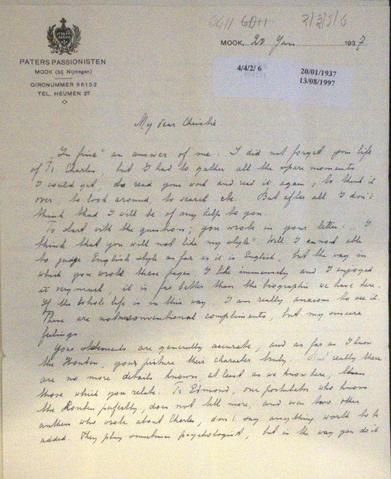 PATERS PASSIONISTEN
MOOK (bij Nijmegen)
GIRONUMMER 96152
TEL. HEUMEN 27
MOOK, 20 Jan 1937
4/4/2/ 6
20/01/1937
13/08/1997
My dear Christie
"In fine" an answer of me. I did not forget your life
of Fr Charles, but I had to gather all the spare moments
I could get, to read your work and read it again, to think it
over to look around, to search etc. But after all I don't
think that I will be of any help to you.
To start with the question; you wrote in your letter: "I
think that you will not like my style" Well I am not able
to judge English style as far as it is English, but the way in
which you wrote these pages I like immensely and I enjoyed
it very much, it is far better than the biographies we have here.
If the whole life is in this way, I am really anxious to see it.
These are not conventional compliments, but my sincere
feelings.
Your statements are generally accurate, and as far as I know
the Houben, you picture their character truly. really there
are no more details known, at least as we know here, than
those which you relate. Fr Edmond, our postulator who knows
the Houben perfectly, does not tell more, and two other
authors who wrote about Charles, don't say anything worth to be
added. They play sometimes psychologist, but in the way you do it